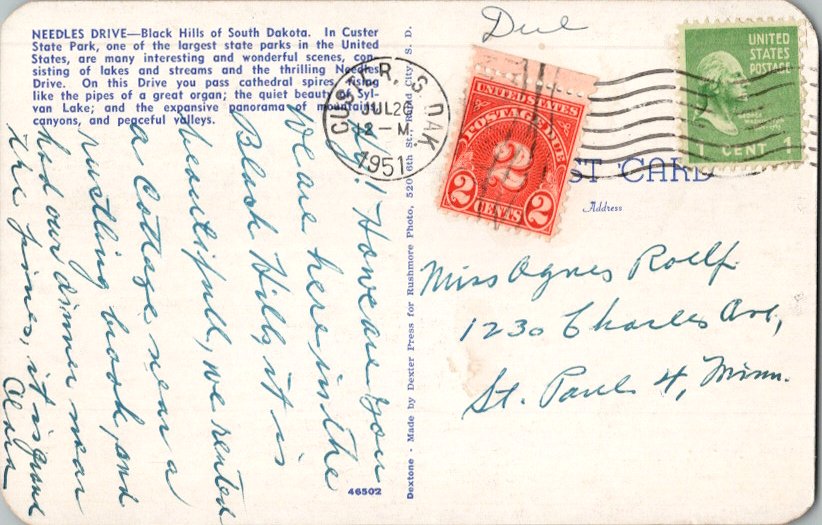 NEEDLES DRIVE—Black Hills of South Dakota. In Custer
State Park, one of the largest state parks in the United
States, are many interesting and wonderful scenes, con-
sisting of lakes and streams and the thrilling Needles
Drive. On this Drive you pass cathedral spires, rising
like the pipes of a great organ; the quiet beauty of Syl-
van Lake; and the expansive panorama of mountains,
canyons, and peaceful valleys.
Hy!! How are you
we are here in the
Black Hills, it is
beautifull, we rented
a Cottage near a
rustling brook, and
had our dinner near
the pines, it is grand
46502
Dextone - Made by Dexter Press for Rushmore Photo, 520 6th St., Rapid City, S. D.
Due
CUSTER, S. DAK.
JUL 26
12 - M
1951
UNITED STATES
POSTAGE DUE
2
2 CENTS 2
UNITED
STATES
POSTAGE
GEORGE
WASHINGTON
1 CENT 1
POST CARD
Address
Miss Agnes Roelf
1230 Charles Ave,
St. Paul 4, Minn.